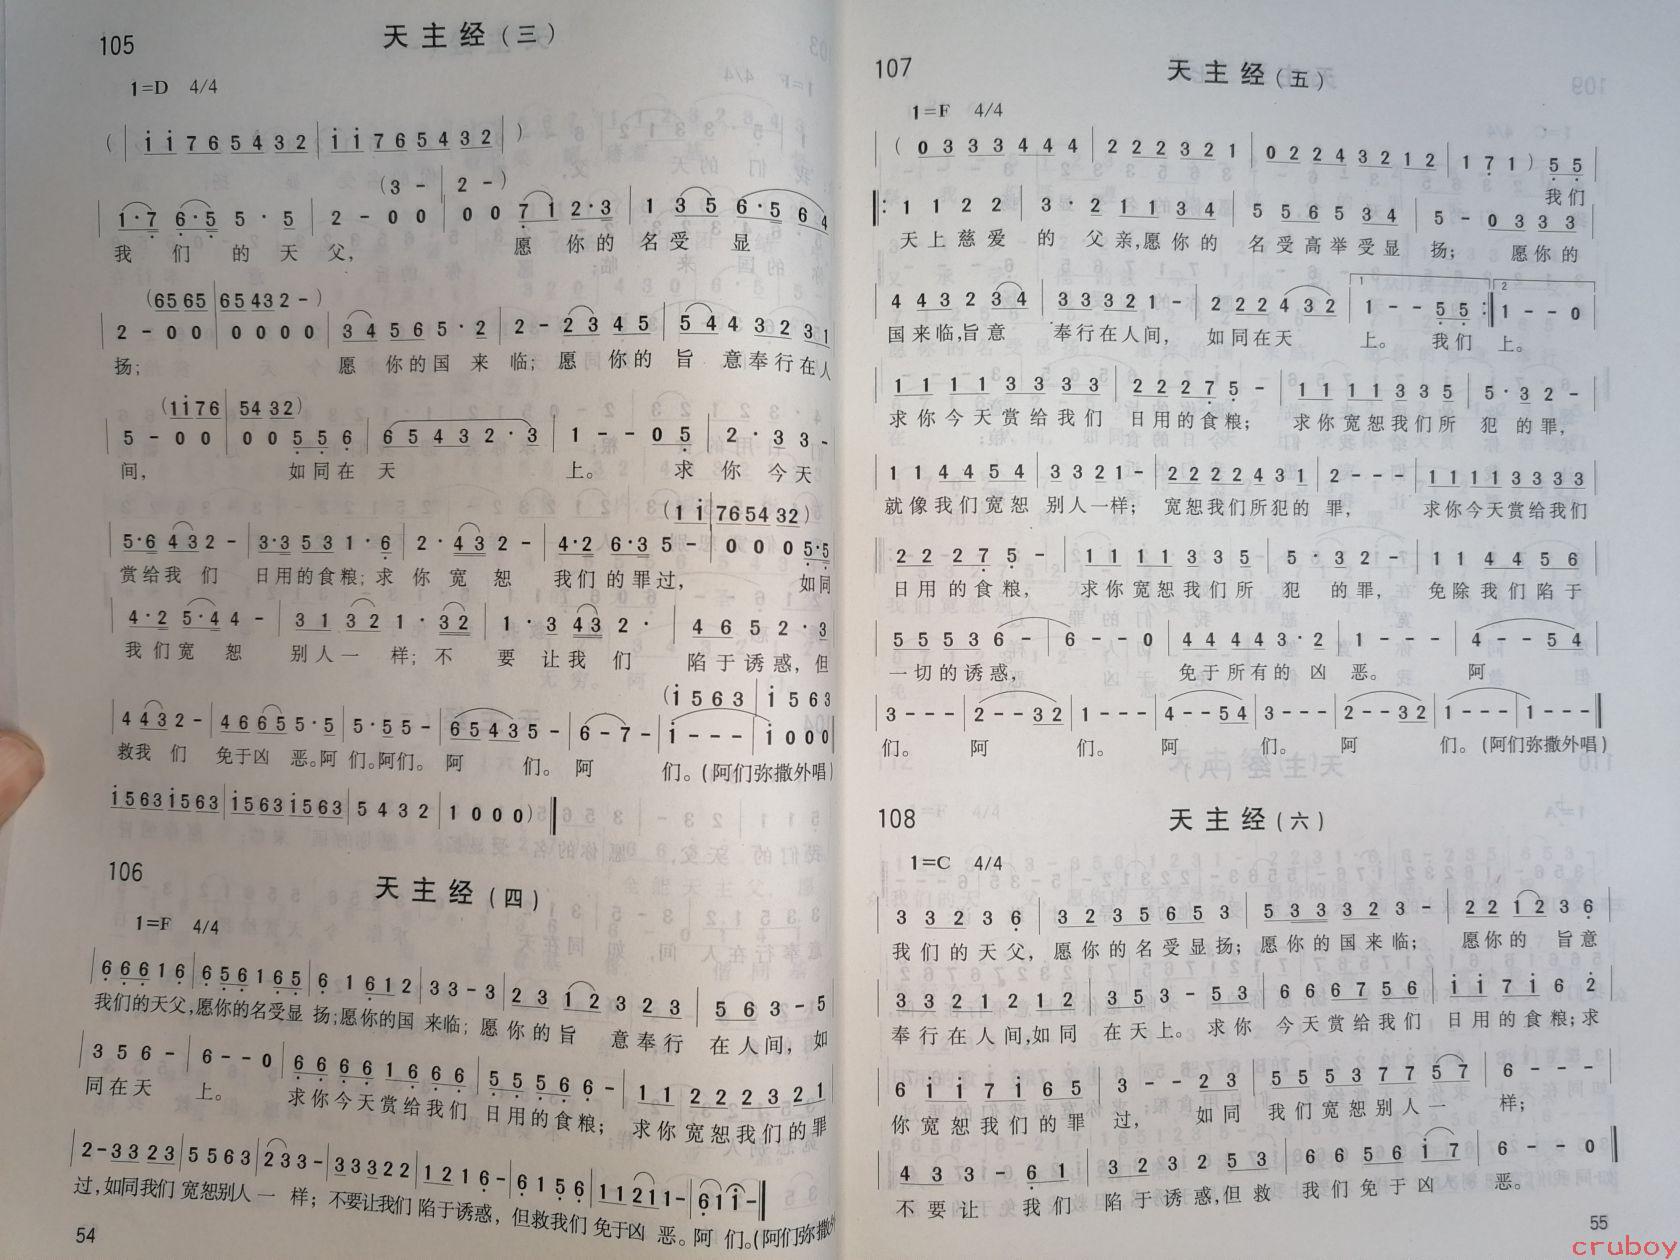 105
天主经(三)
1=D 4/4
( i i 7 6 5 4 3 2 | i i 7 6 5 4 3 2 | )
(3 - | 2 - )
1·7 6·5 5 · 5 | 2 - 0 0 | 0 0 7 1 2·3 | 1 3 5 6·5 6 4
我们的天父, 愿你的名受显
(65 65 | 65 43 2 - )
2 - 0 0 | 0 0 0 0 | 3 4 5 6 5 · 2 | 2 - 2 3 4 5 | 5 4 4 3 2 3 1
扬; 愿你的国来临; 愿你的旨意奉行在人
(1i76 | 54 32)
5 - 0 0 | 0 0 5 5 6 | 6 5 4 3 2 · 3 | 1 - - 0 5 | 2 · 3 3 -
间, 如同在天上。 求你今天
(1 i | 765432)
5·6 4 3 2 - | 3·3 5 3 1 · 6 | 2 · 4 3 2 - | 4·2 6·3 5 - | 0 0 0 5·5
赏给我们日用的食粮; 求你宽恕我们的罪过, 如同
4·2 5·4 4 - | 3 1 3 2 1 · 3 2 | 1 · 3 4 3 2 · | 4 6 5 2 · 3
我们宽恕别人一样; 不要让我们陷于诱惑, 但
(i 5 6 3 | i 5 6 3
4 4 3 2 - | 4 6 6 5 5 5·5 | 5·5 5 - | 6 5 4 3 5 - | 6 - 7 - | i - - - | i 0 0 0
救我们免于凶恶。阿们。阿们。阿们。阿们。(阿们弥撒外唱)
i 5 6 3 i 5 6 3 | i 5 6 3 i 5 6 3 | 5 4 3 2 | 1 0 0 0 )
106
天主经(四)
1=F 4/4
6 6 6 1 6 | 6 5 6 1 6 5 | 6 1 6 1 2 | 3 3 - 3 | 2 3 1 2 3 2 3 | 5 6 3 - 5
我们的天父,愿你的名受显扬;愿你的国来临;愿你的旨意奉行在人间, 如
3 5 6 - | 6 - - 0 | 6 6 6 6 1 6 6 6 | 5 5 5 6 6 - | 1 1 2 2 2 3 2 1
同在天上。 求你今天赏给我们日用的食粮; 求你宽恕我们的罪
2 - 3 3 2 3 | 5 5 6 3 | 2 3 3 - | 3 3 3 2 2 | 1 2 1 6 - | 6 1 5 6 | 1 1 2 1 1 - | 6 1 i -
过,如同我们宽恕别人一样; 不要让我们陷于诱惑, 但救我们免于凶恶。阿们。(阿们弥撒外
54
107
天主经(五)
1=F 4/4
( 0 3 3 3 4 4 4 | 2 2 2 3 2 1 | 0 2 2 4 3 2 1 2 | 1 7 1 ) 5 5
我们
1 1 2 2 | 3 · 2 1 1 3 4 | 5 5 6 5 3 4 | 5 - 0 3 3 3
天上慈爱的父亲,愿你的名受高举受显扬; 愿你的
4 4 3 2 3 4 | 3 3 3 2 1 - | 2 2 2 4 3 2 | 1 - - 5 5 :| 1 - - 0
国来临,旨意奉行在人间, 如同在天上。 我们上。
1 1 1 1 3 3 3 3 | 2 2 2 7 5 - | 1 1 1 1 3 3 5 | 5 · 3 2 -
求你今天赏给我们日用的食粮; 求你宽恕我们所犯的罪,
1 1 4 4 5 4 | 3 3 2 1 - | 2 2 2 2 4 3 1 | 2 - - - | 1 1 1 1 3 3 3 3
就像我们宽恕别人一样; 宽恕我们所犯的罪, 求你今天赏给我们
2 2 2 7 5 - | 1 1 1 1 3 3 5 | 5 · 3 2 - | 1 1 4 4 5 6
日用的食粮, 求你宽恕我们所犯的罪, 免除我们陷于
5 5 5 5 3 6 - | 6 - - 0 | 4 4 4 4 3 · 2 | 1 - - - | 4 - - 5 4
一切的诱惑, 免于所有的凶恶。 阿
3 - - - | 2 - - 3 2 | 1 - - - | 4 - - 5 4 | 3 - - - | 2 - - 3 2 | 1 - - - | 1 - - -
们。阿们。阿们。阿们。(阿们弥撒外唱)
108
天主经(六)
1=C 4/4
3 3 2 3 6 | 3 2 3 5 6 5 3 | 5 3 3 3 2 3 - | 2 2 1 2 3 6
我们的天父, 愿你的名受显扬; 愿你的国来临; 愿你的旨意
3 3 2 1 2 1 2 | 3 5 3 - 5 3 | 6 6 6 7 5 6 | i i 7 i 6 2
奉行在人间,如同在天上。 求你今天赏给我们日用的食粮; 求
6 i i 7 i 6 5 | 3 - - 2 3 | 5 5 5 3 7 7 5 7 | 6 - - -
你宽恕我们的罪过, 如同我们宽恕别人一样;
4 3 3 - 6 1 | 3 2 3 2 5 3 | 6 6 5 6 i 7 | 6 - - 0
不要让我们陷于诱惑,但救我们免于凶恶。
55
cruboy